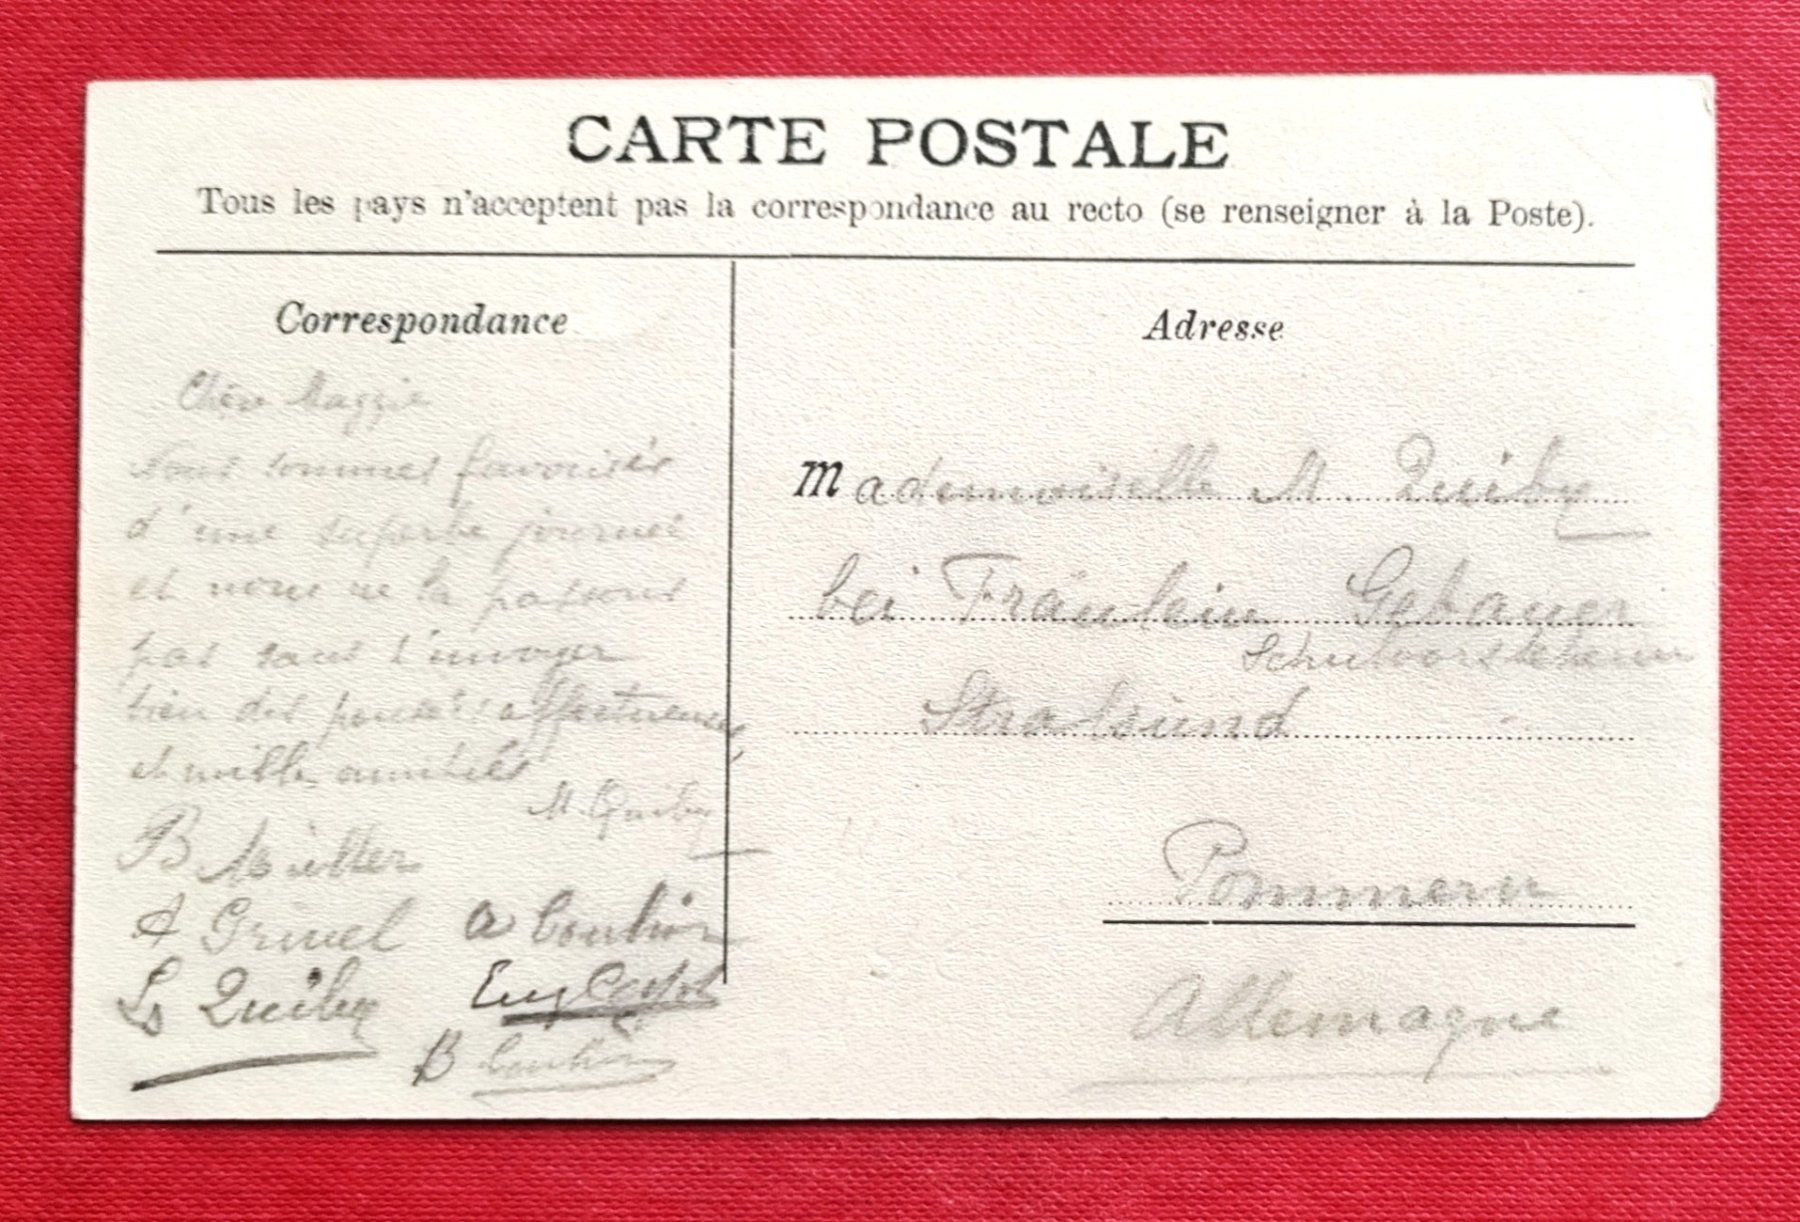 CARTE POSTALE
Tous les pays n'acceptent pas la correspondance au recto (se renseigner à la Poste).
Correspondance
Chère Maggie
Nous sommes favorisés
d'une superbe journée
et nous ne la passons
pas sans t'envoyer
bien des pensées affectueuses
et mille amitiés
M. Quiby
B Müller
A Grivel
A
L. Quiby
Eug
B
Adresse
Mademoiselle M. Quiby
bei Fräulein Gebauer
Schulvorsteherin
Stralsund
Pommern
Allemagne